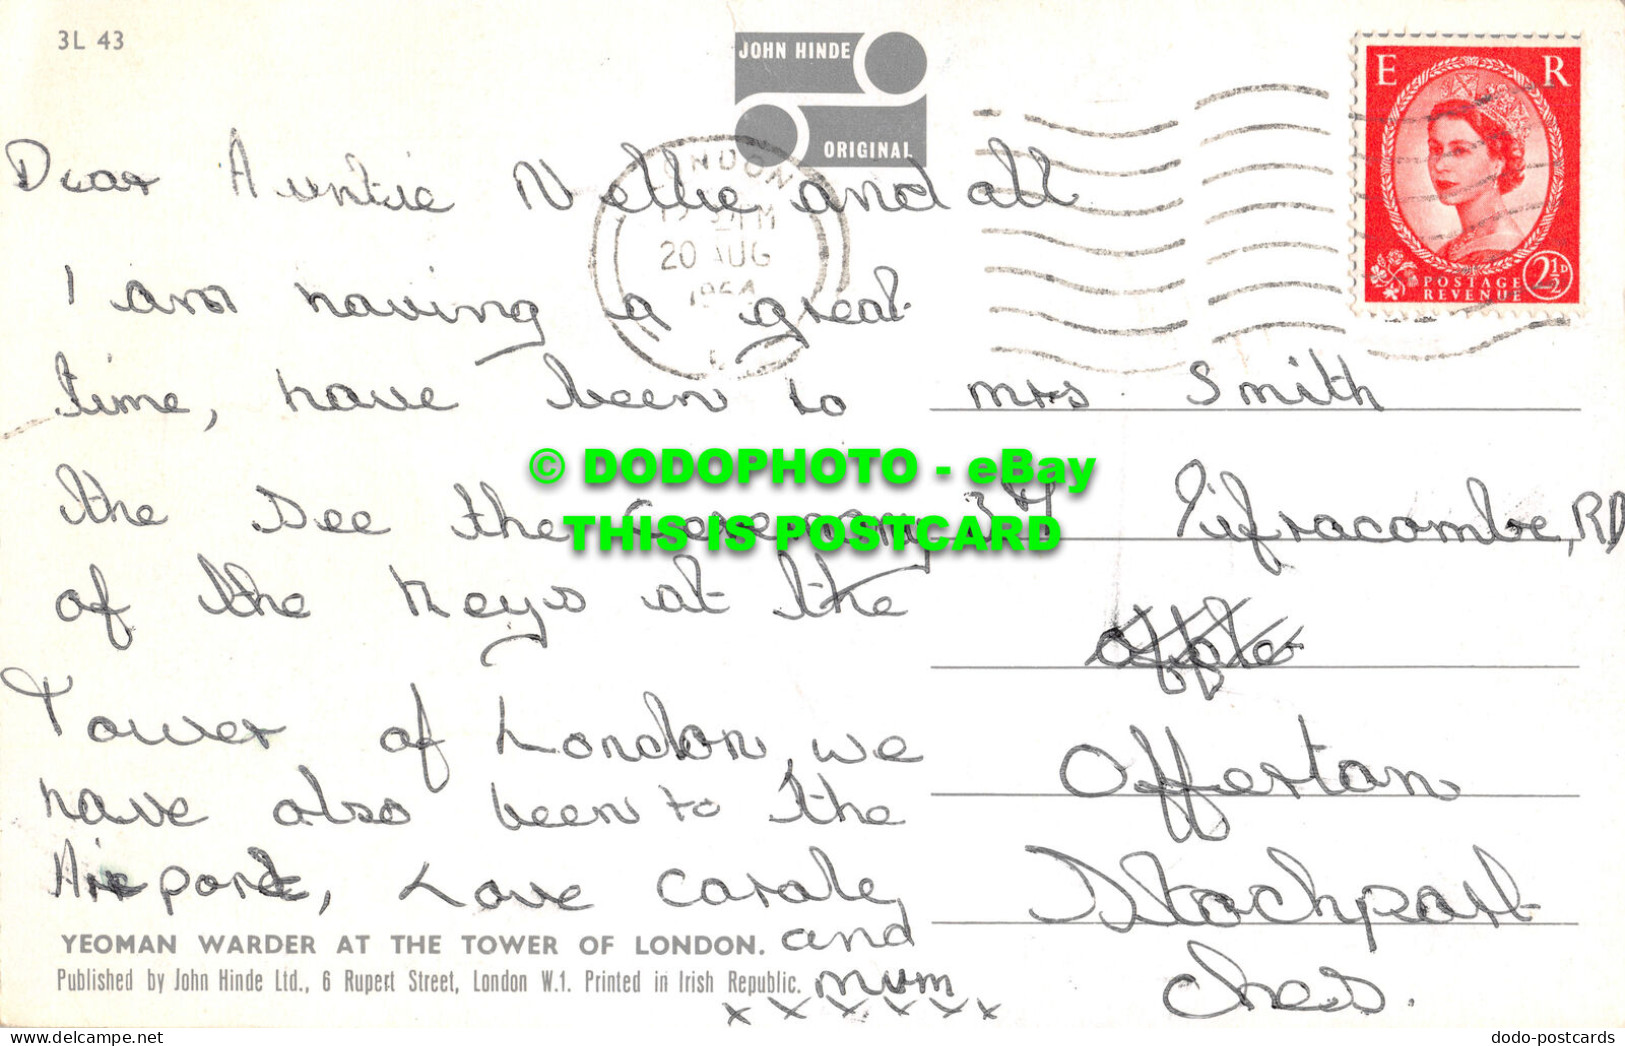 3L 43
JOHN HINDE
ORIGINAL
E R
POSTAGE
REVENUE
2½D
20 AUG
Dear Auntie Nellie and all
I am having a great
time, have been to
the see the Ceremony
of the Keys at the
Tower of London, we
have also been to the
Airport, Love Carole,
and
mum
x x x x x x
Mrs Smith
Lifracombe, RD
Offerton
Stockport
Ches.
YEOMAN WARDER AT THE TOWER OF LONDON.
Published by John Hinde Ltd., 6 Rupert Street, London W.1. Printed in Irish Republic.
© DODOPHOTO - eBay
THIS IS POSTCARD
dodo-postcards